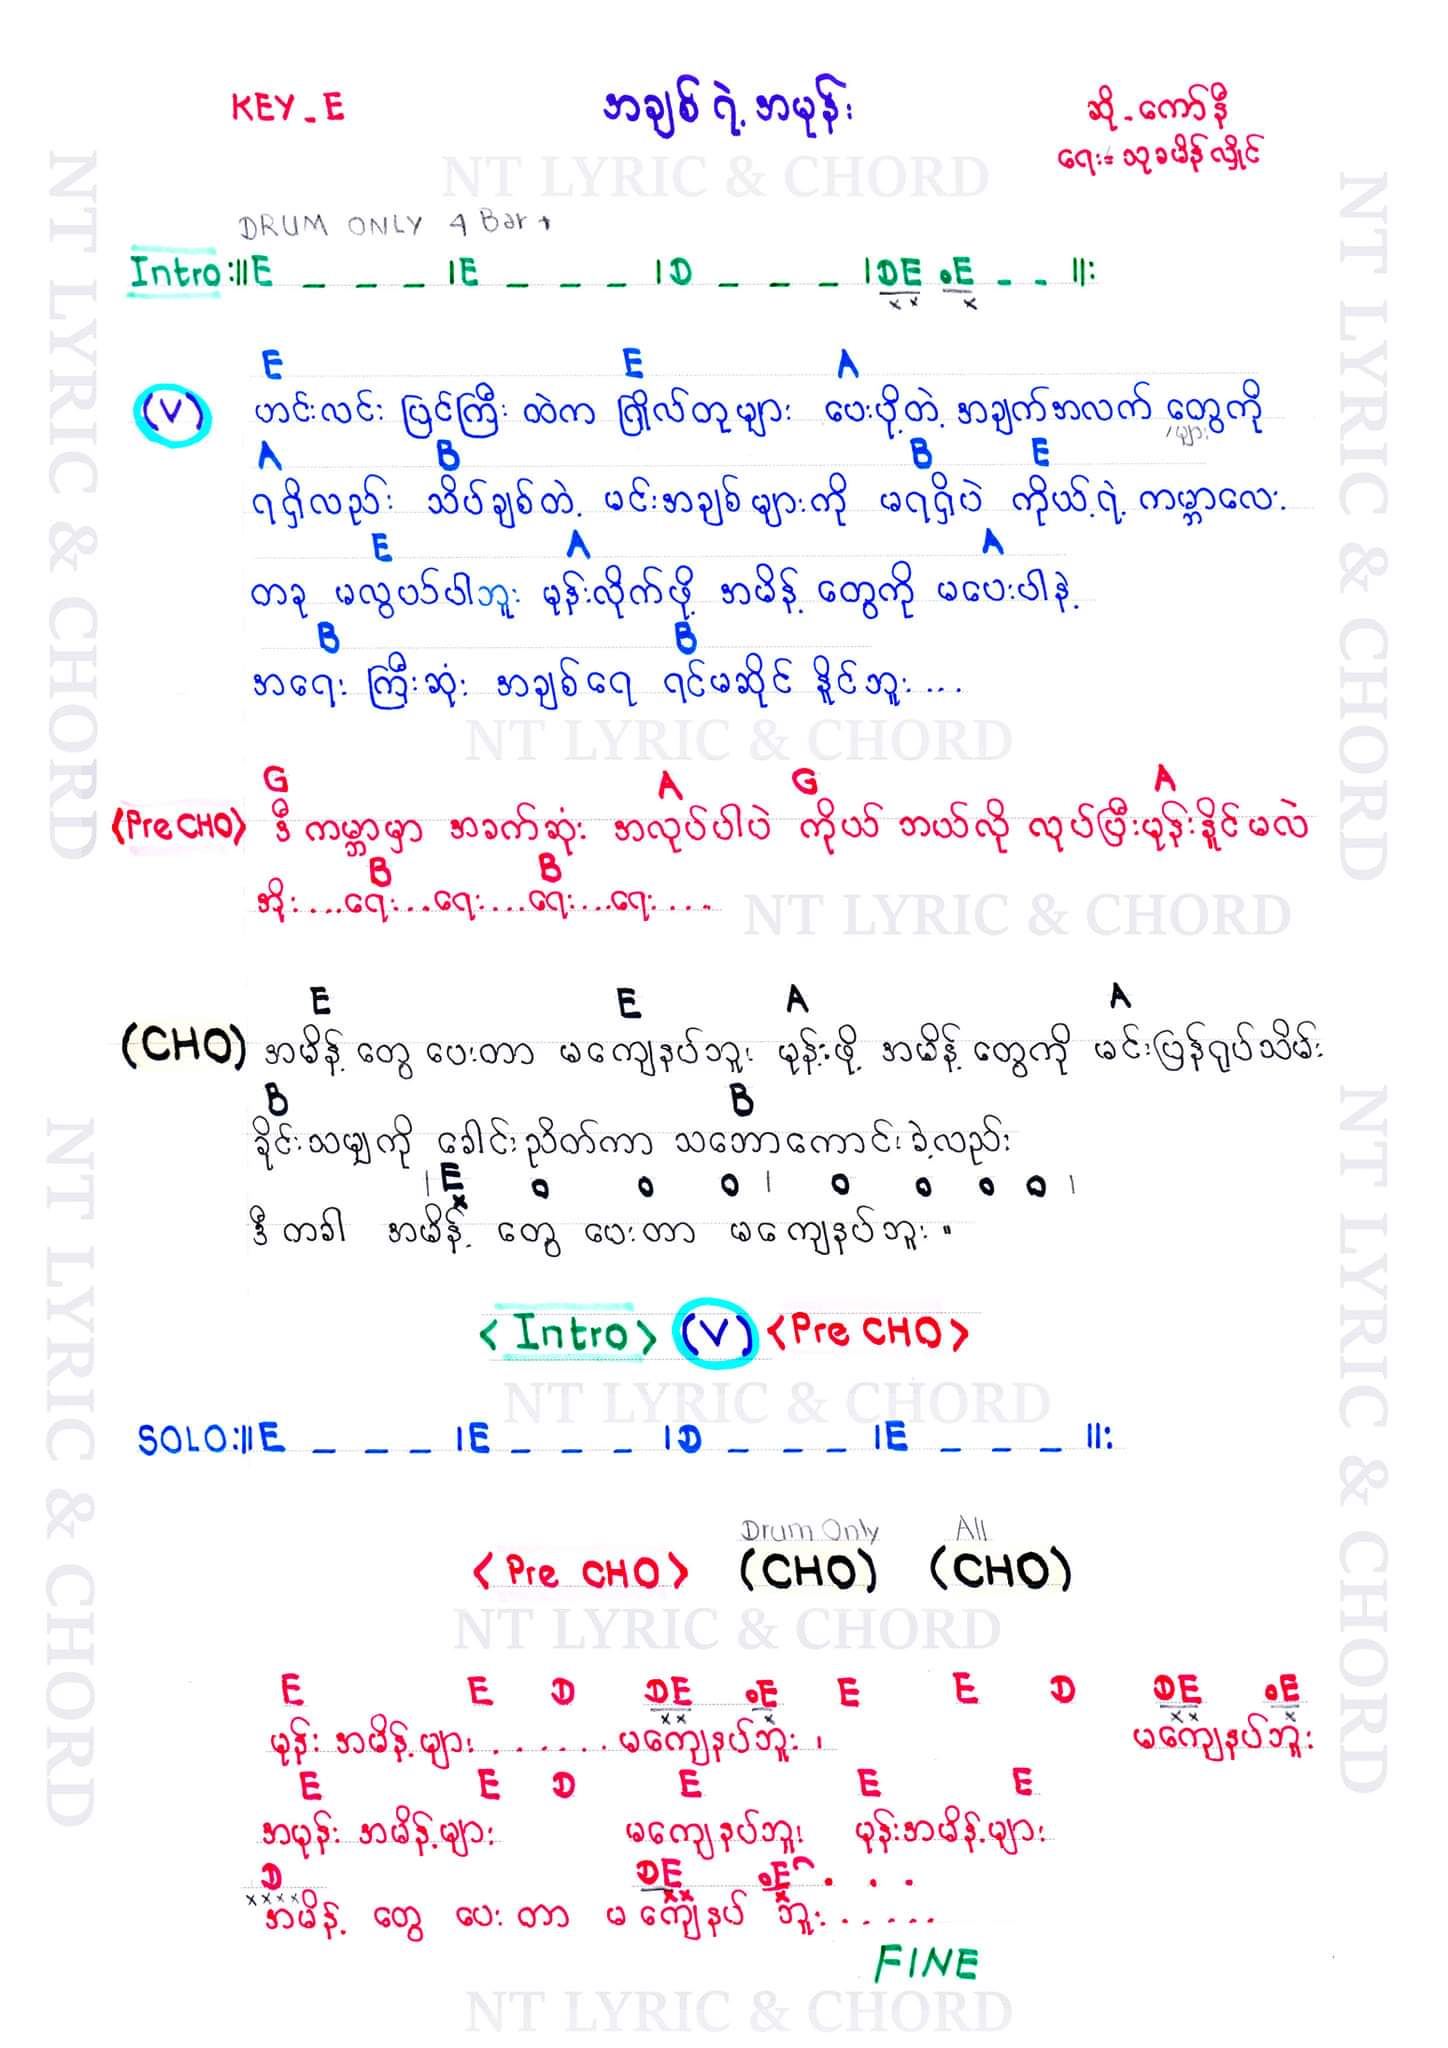 KEY_E
အချစ်ရဲ့အမုန်း
ဆို-ကော်နီ
ရေး=သုခမိန်လှိုင်
NT LYRIC & CHORD
DRUM ONLY 4 Bar +
Intro :||E _ _ _ |E _ _ _ |D _ _ _ |DE .E _ _ ||:
x x x
E E A
(V) ဟင်းလင်း ပြင်ကြီး ထဲက ဂြိုလ်တုများ ပေးပို့တဲ့ အချက်အလက် တွေကို
များ
A B B E
ရရှိလည်း သိပ်ချစ်တဲ့ မင်းအချစ်များကို မရရှိပဲ ကိုယ့်ရဲ့ ကမ္ဘာလေး
E A A
တခု မလှပဘူး မုန်းလိုက်ဖို့ အမိန့် တွေကို မပေးပါနဲ့
B B
အရေး ကြီးဆုံး အချစ်ရေ ရင်မဆိုင် နိူင်ဘူး ...
NT LYRIC & CHORD
G A G A
<Pre CHO> ဒီ ကမ္ဘာမှာ အခက်ဆုံး အလုပ်ပါပဲ ကိုယ် ဘယ်လို လုပ်ပြီးမုန်းနိူင်မလဲ
B B
အိုး....ရေး...ရေး....ရေး...ရေး....
NT LYRIC & CHORD
E E A A
(CHO) အမိန့် တွေ ပေးတာ မကျေနပ်ဘူး မုန်းဖို့ အမိန့် တွေကို မင်းပြန်ရုပ်သိမ်း
B B
ခိုင်းသမျှကို ခေါင်းညိတ်ကာ သဘောကောင်းခဲ့လည်း
| E o o o | o o o o |
x
ဒီ တခါ အမိန့် တွေ ပေးတာ မကျေနပ်ဘူး ။
<Intro> (V) <Pre CHO>
NT LYRIC & CHORD
SOLO :||E _ _ _ |E _ _ _ |D _ _ _ |E _ _ _ ||:
Drum Only All
<Pre CHO> (CHO) (CHO)
NT LYRIC & CHORD
E E D DE .E E E D DE .E
x x x x x x
မုန်း အမိန့်များ ....... မကျေနပ်ဘူး ၊ မကျေနပ်ဘူး
E E D E E E
အမုန်း အမိန့်များ မကျေနပ်ဘူး မုန်းအမိန့်များ
D DE .E . . .
x x x x x x x
အမိန့် တွေ ပေး တာ မ ကျေနပ် ဘူး ......
FINE
NT LYRIC & CHORD
NT LYRIC & CHORD
NT LYRIC & CHORD
NT LYRIC & CHORD
NT LYRIC & CHORD